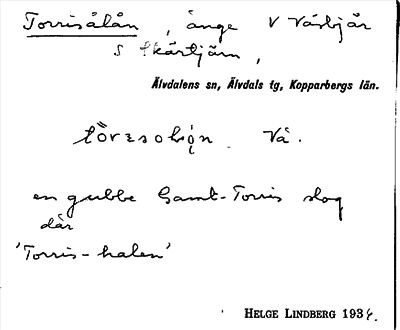 Torrisålån, änge V Väsbjär
S Skärtjärn,
Älvdalens sn, Älvdals tg, Kopparbergs län.
Vå.
en gubbe Gamt-Torris slog
där
'Torris-halen'
HELGE LINDBERG 1934.